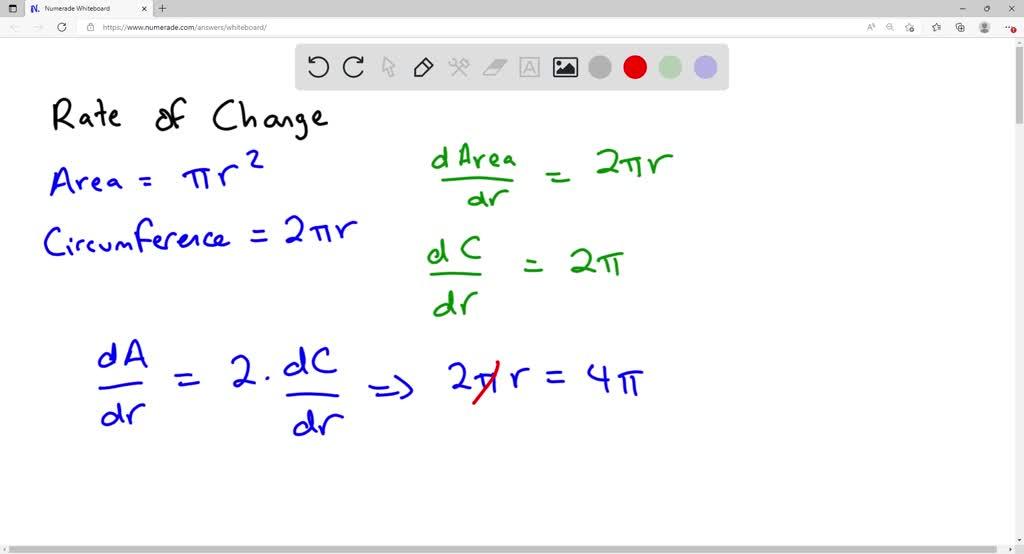 Numerade Whiteboard
https://www.numerade.com/answers/whiteboard/
Rate of Change
Area = πr²
Circumference = 2πr
dArea/dr = 2πr
dC/dr = 2π
dA/dr = 2 · dC/dr => 2πr = 4π